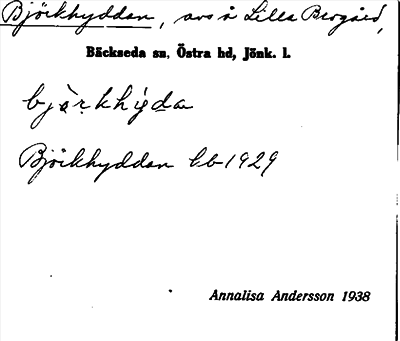 Björkhyddan, avs å Lilla Bergård,
Bäckseda sn, Östra hd, Jönk. l.
bjərkhyda
Björkhyddan bb 1929
Annalisa Andersson 1938